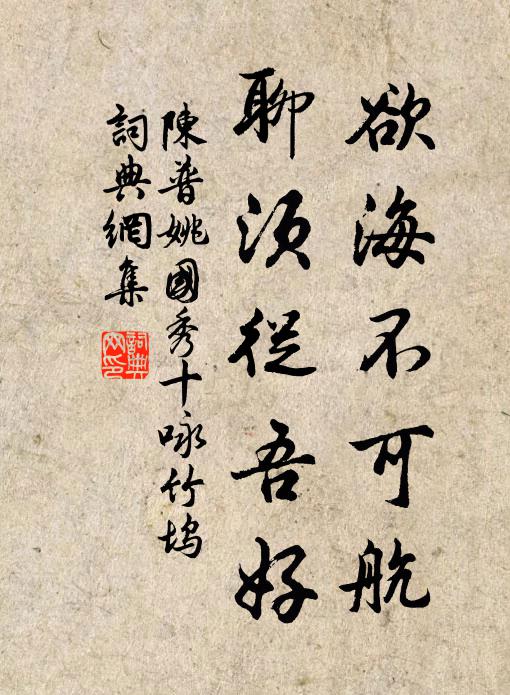 欲海不可航
聊須從吾好
陳普姚國秀十咏竹塢
詞典網集
詞典網印